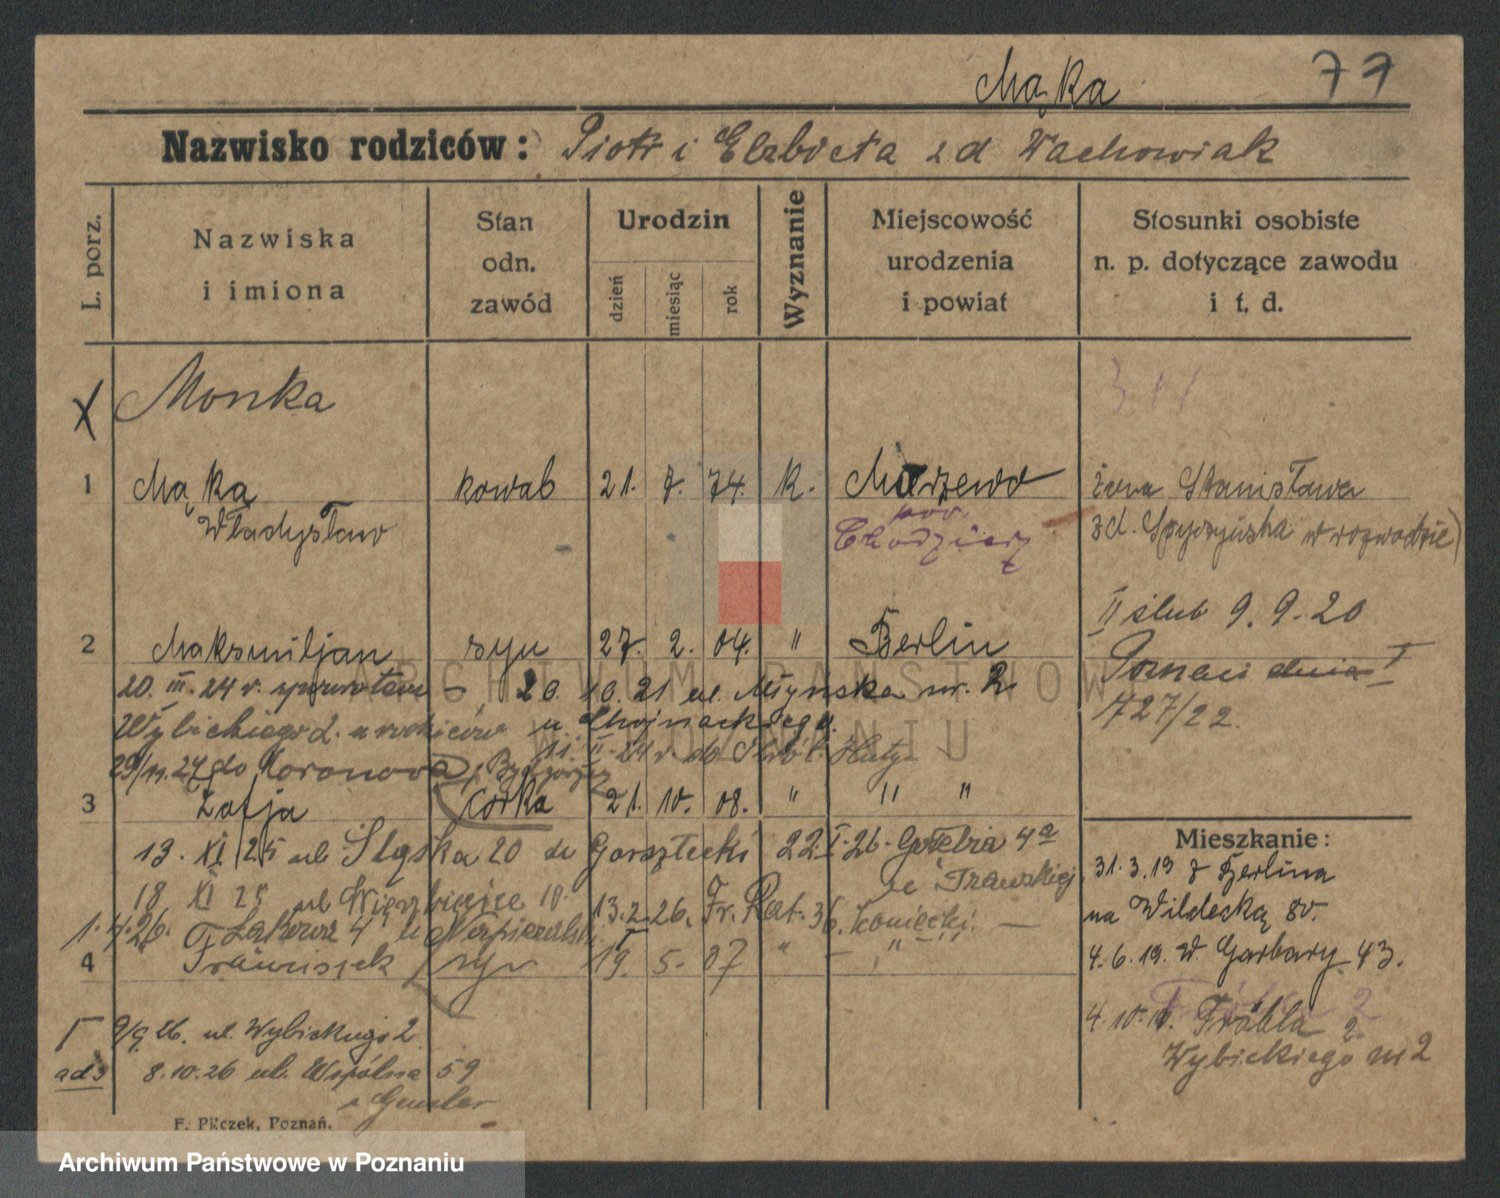 Mąka 77
Nazwisko rodziców: Piotr i Elżbieta z d Wachowiak
L. porz.
Nazwiska
i imiona
Stan
odn.
zawód
Urodzin
dzień
miesiąc
rok
Wyznanie
Miejscowość
urodzenia
i powiat
Stosunki osobiste
n. p. dotyczące zawodu
i t. d.
X Monka
1 Mąka kowal 21. 7. 74. K. Marzewo żona Stanisława
Władysław pow. zd. w rozwodzie)
Chodzież
II ślub 9. 9. 20
2 Maksmiljan syn 27. 2. 04. " Berlin Poznań
20. III. 24 r. 20. 10. 21 ul. Młyńska nr. 2
727/22.
Wybickiego 2. u rodziców u Chojnackiego
11. II. 24 r. do Huty
29/11. 27 do Koronowa p. Bydgoszcz
3 Zofja córka 21. 10. 08. " " "
13. XI 25 ul Śląska 20 22. I. 26. Gołebia 4a
18 XI 25 ul 10 13. 2. 26. Fr. Rat. 36.
1. 4. 26. Łąkowa 4
4 Franciszek syn 19. 5. 07 " "
9/9. 26. ul. Wybickiego 2
ad 3 8. 10. 26 ul. Wspólna 59
Mieszkanie:
31. 3. 19 z Berlina
na Wildecką 80.
4. 6. 19. W. Garbary 43.
4. 10. 19. Fröbla 2
Wybickiego nr 2
F. Pilczek, Poznań.
ARCHIWUM PAŃSTWOWE
W POZNANIU
Archiwum Państwowe w Poznaniu